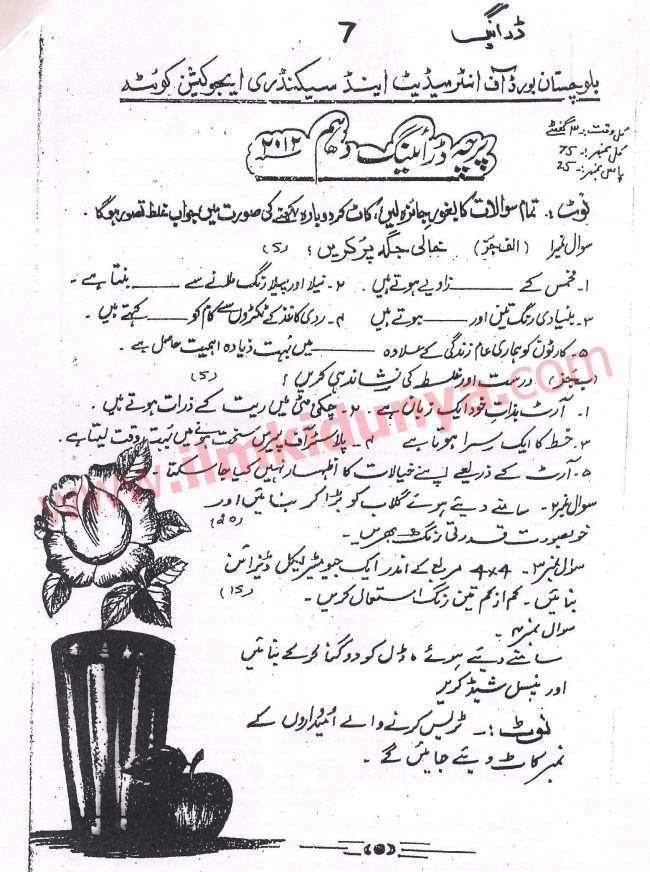 ڈرائنگ
7
بلوچستان بورڈ آف انٹرمیڈیٹ اینڈ سیکنڈری ایجوکیشن کوئٹہ
پرچہ ڈرائینگ دھم ۲۰۱۲
کل وقت :۔ ۳ گھنٹے
کل نمبر :۔ 75
پاس نمبر :۔ 25
نوٹ :۔ تمام سوالات کا بغور جائزہ لیں، کاٹ کر دوبارہ لکھنے کی صورت میں جواب غلط تصور ہوگا ۔
سوال نمبر ۱ (الف جز) خالی جگہ پُر کریں : (5)
۱۔ مخمس کے ــــــــ زاویے ہوتے ہیں ۔ ۲۔ نیلا اور پیلا رنگ ملانے سے ــــــــ بنتا ہے ۔
۳۔ بنیادی رنگ تین اور ــــــــ ہوتے ہیں ۴۔ ردی کاغذ کے ٹکڑوں سے کام کو ــــــــ کہتے ہیں ۔
۵۔ کارٹون کو ہماری عام زندگی کے علاوہ ــــــــ میں بُہت زیادہ اہمیت حاصل ہے ۔
(ب جز) درست اور غلط کی نشاندہی کریں : (5)
۱۔ آرٹ بذات خود ایک زبان ہے ۔ ۲۔ چکنی مٹی میں ریت کے ذرات ہوتے ہیں ۔
۳۔ خط کا ایک سرا ہوتا ہے ۴۔ پلاسٹر آف پیرس سخت ہونے میں بُہت وقت لیتا ہے ۔
۵۔ آرٹ کے ذریعے اپنے خیالات کا اظہار نہیں کیا جا سکتا
سوال نمبر ۲۔ سامنے دیئے ہوئے گلاب کو بڑا کر بنائیں اور
خوبصورت قدرتی رنگ بھریں ۔ (20)
سوال نمبر ۳۔ 4x4 مربع کے اندر ایک جیومیٹریکل ڈیزائن
بنائیں ۔ کم از کم تین رنگ استعمال کریں ۔ (15)
سوال نمبر ۴۔
سامنے دیئے ہوئے ماڈل کو دوگنا کرکے بنائیں
اور پنسل شیڈ کریں
نوٹ :۔ ٹریس کرنے والے اُمیدواروں کے
نمبر کاٹ دیئے جائیں گے ۔
www.ilmkidunya.com